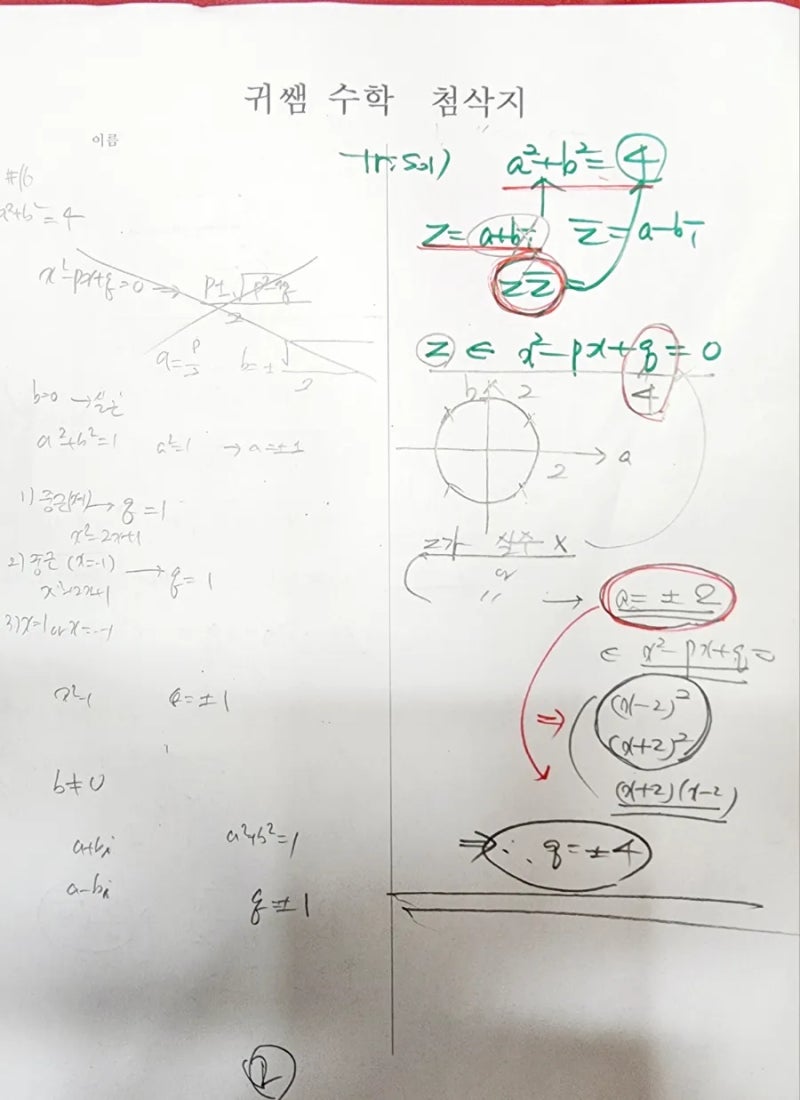 귀쌤 수학 첨삭지
이름
#16
a²+b²=4
x²-px+q=0 ⇒ p±√p²-4q
2
a=p/2 b=±
2
b=0 → 실근
a²+b²=1 a²=1 → a=±1
1) → q=1
x²-2x+1
2) 중근 (x=-1) → q=1
x²+2x+1
3) x=1 or x=-1
x²-1 q=±1
b≠0
a+bi a²+b²=1
a-bi
q=±1
1
sol) a²+b²=4
Z=a+bi Z̄=a-bi
ZZ̄=
Z ∈ x²-px+q=0
4
b 2
2 a
Z가 실수 X
〃 → a=±2
∈ x²-px+q=0
⇒ (x-2)²
(x+2)²
(x+2)(x-2)
⇒ ∴ q=±4